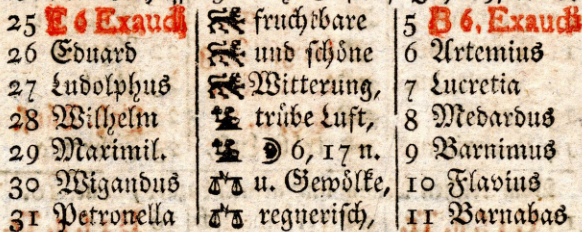 25 E 6 Exaudi fruchtbare 5 B 6. Exaudi
26 Eduard und schöne 6 Artemius
27 Ludolphus Witterung, 7 Lucretia
28 Wilhelm trübe Luft, 8 Medardus
29 Maximil. 6, 17 n. 9 Barnimus
30 Wigandus u. Gewölke, 10 Flavius
31 Petronella regnerisch, 11 Barnabas